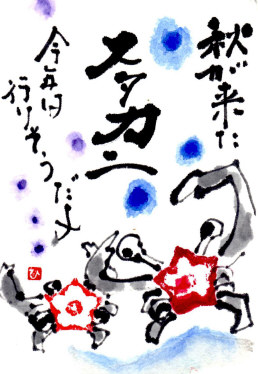 秋が来た
スタカニ
今年は
行けそうだよ
ひ